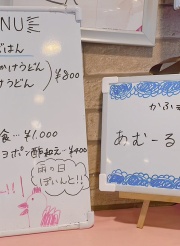 NU
ごはん
かけうどん
けうどん
¥800
食… ¥1.000
ポン酢和え…¥400
雨の日
ぽいんと!!
かふぇ
あむーる